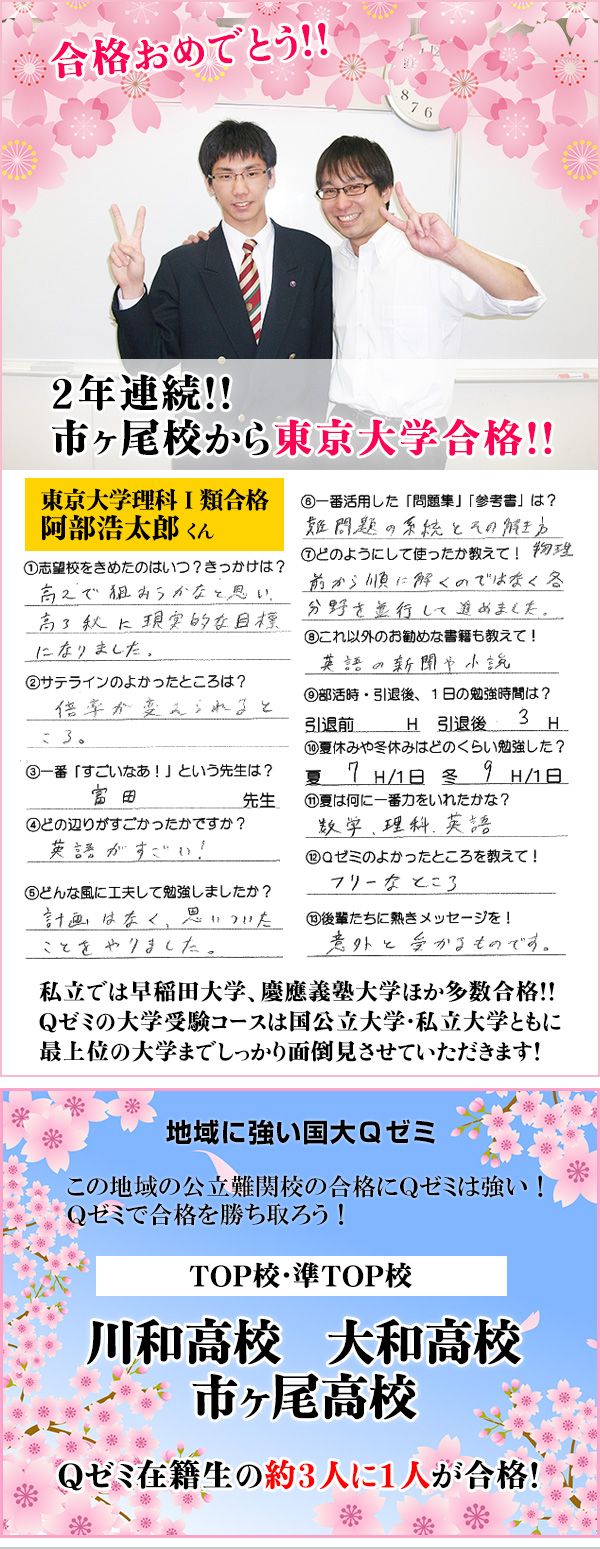 合格おめでとう!!
8 7 6
2年連続!!
市ヶ尾校から東京大学合格!!
東京大学理科Ⅰ類合格
阿部浩太郎くん
①志望校をきめたのはいつ？きっかけは？
高2で狙おうかなと思い、
高3秋に現実的な目標
になりました。
②サテラインのよかったところは？
倍率が変えられると
ころ。
③一番「すごいなあ！」という先生は？
富田 先生
④どの辺りがすごかったかですか？
英語がすごい！
⑤どんな風に工夫して勉強しましたか？
計画はなく、思いついた
ことをやりました。
⑥一番活用した「問題集」「参考書」は？
難問題の系統とその解き方
物理
⑦どのようにして使ったか教えて！
前から順に解くのではなく各
分野を並行して進めました。
⑧これ以外のお勧めな書籍も教えて！
英語の新聞や小説
⑨部活時・引退後、1日の勉強時間は？
引退前 H 引退後 3 H
⑩夏休みや冬休みはどのくらい勉強した？
夏 7 H/1日 冬 9 H/1日
⑪夏は何に一番力をいれたかな？
数学、理科、英語
⑫Qゼミのよかったところを教えて！
フリーなところ
⑬後輩たちに熱きメッセージを！
意外と受かるものです。
私立では早稲田大学、慶應義塾大学ほか多数合格!!
Qゼミの大学受験コースは国公立大学・私立大学ともに
最上位の大学までしっかり面倒見させていただきます！
地域に強い国大Qゼミ
この地域の公立難関校の合格にQゼミは強い！
Qゼミで合格を勝ち取ろう！
TOP校・準TOP校
川和高校 大和高校
市ヶ尾高校
Qゼミ在籍生の約3人に1人が合格！